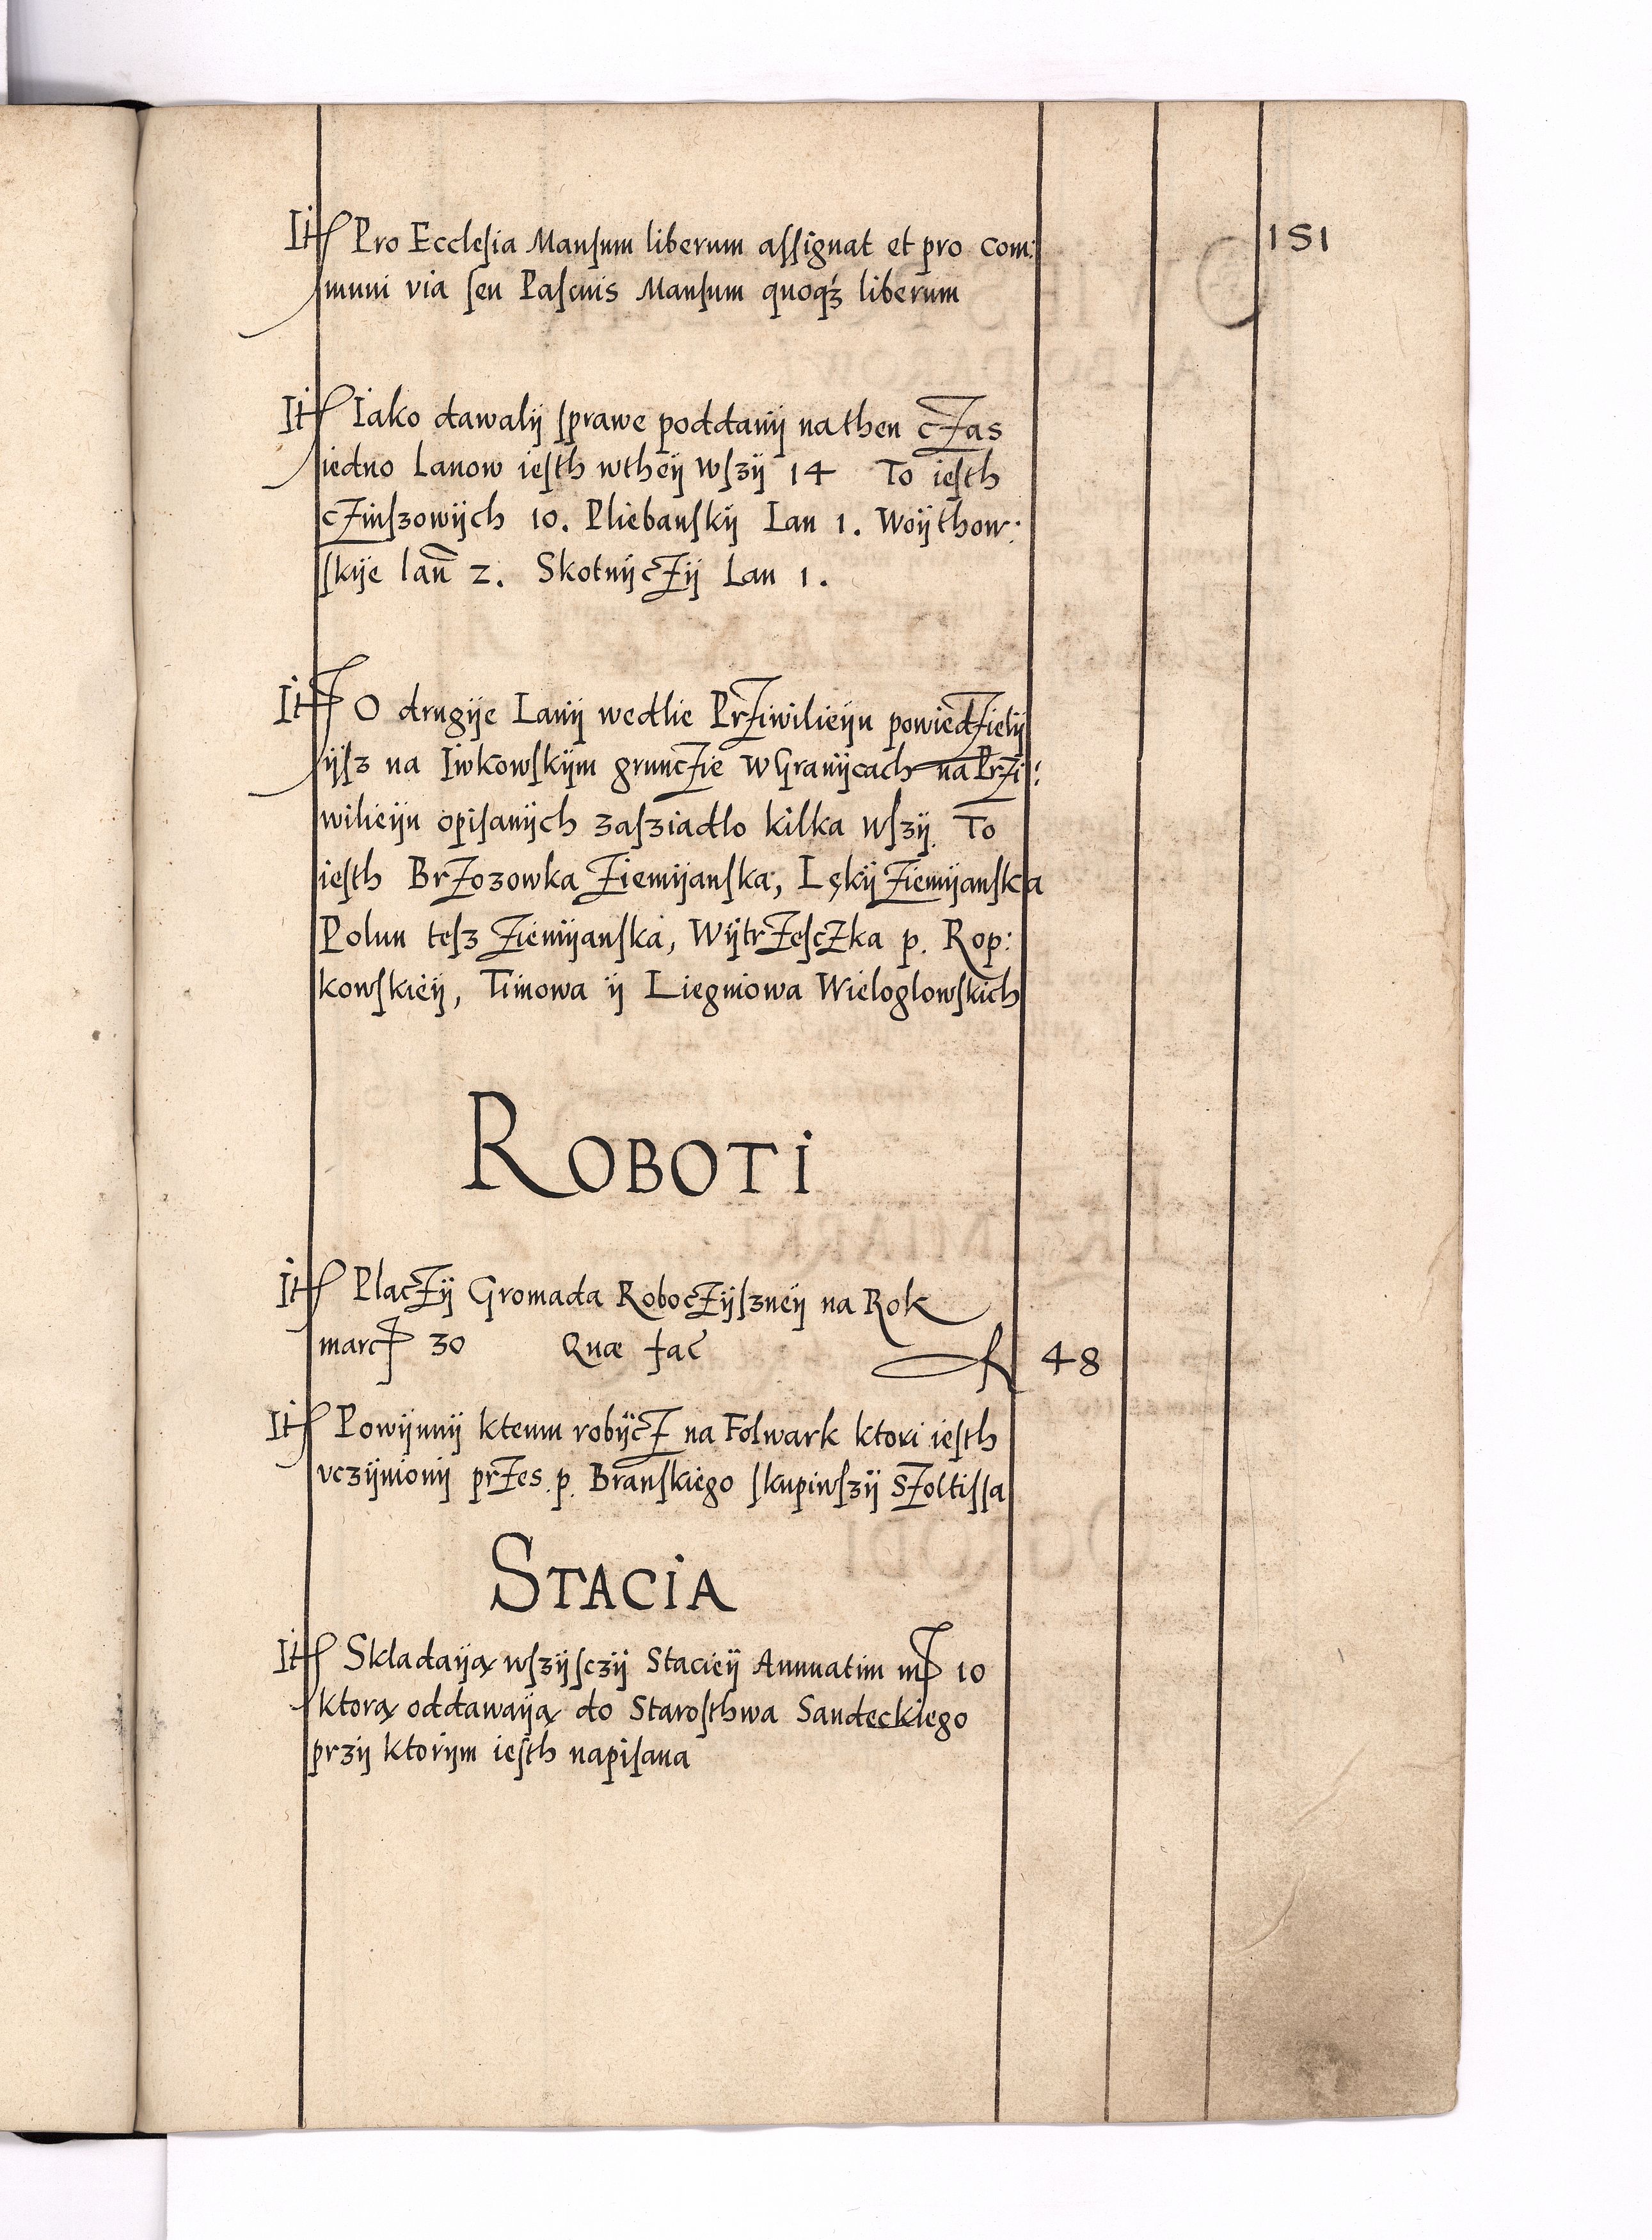 151
It Pro Ecclesia Mansum liberum assignat et pro com:
muni via seu Pascuis Mansum quoqз liberum
It Iako dawalÿ sprawe poddanÿ na then cżas
iedno Lanow iesth wtheÿ wszÿ 14 To iesth
cżinszowÿch 10. Pliebanskÿ Lan 1. Woÿthow:
skÿe lan̄ 2. SkotnÿcżÿLan 1.
It O drugÿe Lanÿ wedlie Prżiwilieÿu powiedżielÿ
ÿsz na Iwkowskÿm gruncżie w Granÿcach na Prżi:
wilieÿu opisanÿch zasziadlo kilka wszÿ. To
iesth Brżozowka Żiemÿanska, Lękÿ Żiemÿanska
Polun tesz Żiemÿanska, Wÿtrżescżka p. Rop:
kowskieÿ, Timowa ÿ Liegniowa Wieloglowskich
ROBOTI
It Placżÿ Gromada Robocżÿszneÿ na Rok
marc 30 Quæ fac̄ 48
It Powÿnnÿ ktemu robÿcż na Folwark ktori iesth
vczÿnionÿ prżes p. Branskiego skupiwszÿ Sżoltissa
STACIA
It Skladaÿą wszÿsczÿ Stacieÿ Annuatim m 10
ktorą oddawaÿą do Starosthwa Sandeckiego
przÿ ktorÿm iesth napisana